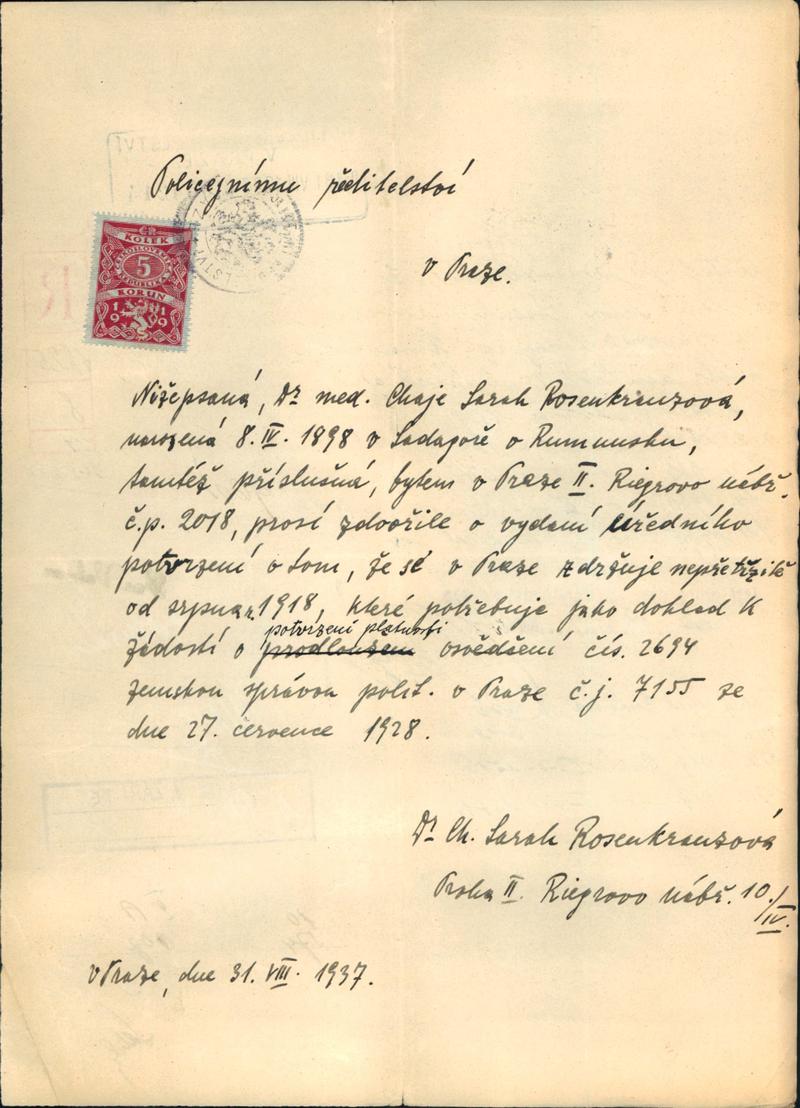 Policejnímu ředitelství
v Praze.
KOLEK
5
KORUN
1919
Nížepsaná, Dr med. Chaje Sarah Rosenkranzová,
narozená 8. IV. 1898 v Sadagoře v Rumunsku,
tamtéž příslušná, bytem v Praze II. Riegrovo nábř.
č.p. 2018, prosí zdvořile o vydání úředního
potvrzení o tom, že se v Praze zdržuje nepřetržitě
od srpna r. 1918, které potřebuje jako doklad k
potvrzení platnosti
žádosti o prodloužení osvědčení čís. 2694
zemskou správou polit. v Praze č.j. 7155 ze
dne 27. července 1928.
Dr Ch. Sarah Rosenkranzová
Praha II. Riegrovo nábř. 10./IV.
v Praze, dne 31. VIII. 1937.